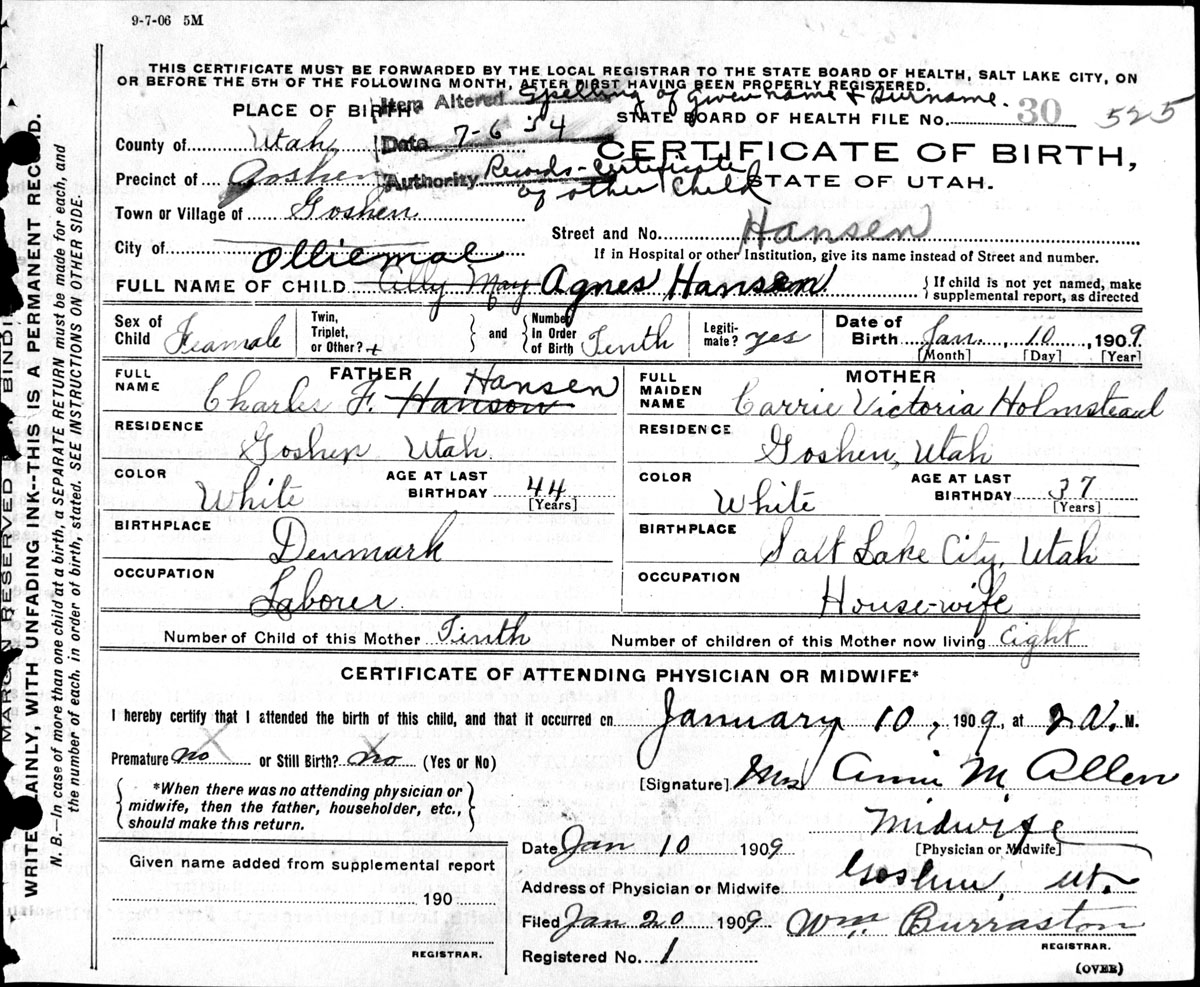 9-7-06 5M
THIS CERTIFICATE MUST BE FORWARDED BY THE LOCAL REGISTRAR TO THE STATE BOARD OF HEALTH, SALT LAKE CITY, ON
OR BEFORE THE 5TH OF THE FOLLOWING MONTH, AFTER FIRST HAVING BEEN PROPERLY REGISTERED.
PLACE OF BIRTH
Item Altered Spelling of Given name & Surname.
STATE BOARD OF HEALTH FILE No. 30 525
County of Utah
Date 7-6-54
CERTIFICATE OF BIRTH,
Precinct of Goshen
Authority Records-Certificate
of other Child
STATE OF UTAH.
Town or Village of Goshen
Street and No. Hansen
City of
If in Hospital or other Institution, give its name instead of Street and number.
Olliemae
FULL NAME OF CHILD Olly May Agnes Hansen
If child is not yet named, make
supplemental report, as directed
Sex of
Child Feamale
Twin,
Triplet,
or Other?
and
Number
In Order
of Birth Tenth
Legiti-
mate? yes
Date of
Birth Jan. 10, 1909
[Month] [Day] [Year]
FATHER
FULL
NAME Charles F. Hanson Hansen
RESIDENCE
Goshen Utah.
COLOR
White
AGE AT LAST
BIRTHDAY 44
[Years]
BIRTHPLACE
Denmark
OCCUPATION
Laborer.
MOTHER
FULL
MAIDEN
NAME Carrie Victoria Holmstead
RESIDENCE
Goshen, Utah
COLOR
White
AGE AT LAST
BIRTHDAY 37
[Years]
BIRTHPLACE
Salt Lake City, Utah
OCCUPATION
House-wife
Number of Child of this Mother Tinth
Number of children of this Mother now living Eight
CERTIFICATE OF ATTENDING PHYSICIAN OR MIDWIFE*
I hereby certify that I attended the birth of this child, and that it occurred on January 10, 1909, at 2 A. M.
Premature no or Still Birth? no (Yes or No)
[Signature] Mrs Annie M Allen
*When there was no attending physician or
midwife, then the father, householder, etc.,
should make this return.
Midwife
[Physician or Midwife]
Date Jan 10 1909
Given name added from supplemental report
190
REGISTRAR.
Address of Physician or Midwife. Goshen, Ut.
Filed Jan 20 1909 Wm. Burraston
REGISTRAR.
Registered No. 1
(OVER)
MARGIN RESERVED BINDI
WRITE AINLY, WITH UNFADING INK--THIS IS A PERMANENT RECORD.
N. B.—In case of more than one child at a birth, a SEPARATE RETURN must be made for each, and
the number of each, in order of birth, stated. SEE INSTRUCTIONS ON OTHER SIDE.